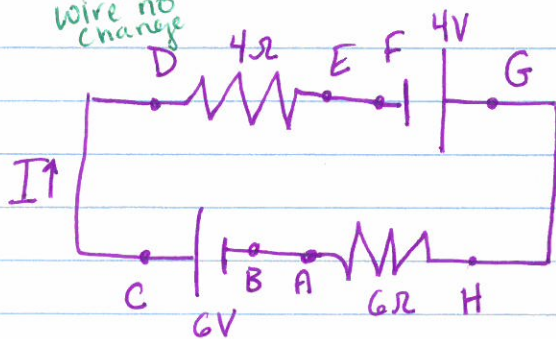 wire no
change
D 4Ω E F 4V G
I↑
C 6V B A 6Ω H